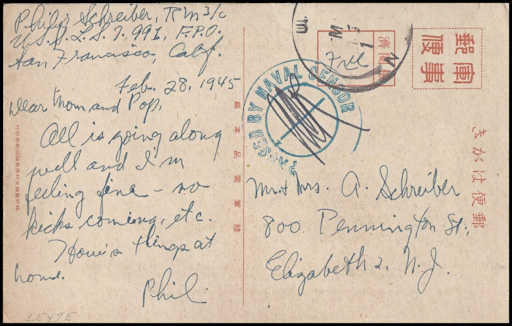 Philip Schreiber, RM3/c
U.S.S. L.S.T. 991, F.P.O.
San Francisco, Calif.
Feb. 28, 1945
Dear Mom and Pop,
All is going along
well and I'm
feeling fine - no
kicks coming, etc.
How's things at
home.
Phil.
PASSED BY NAVAL CENSOR
Free
軍事
郵便
きがは便郵
Mr + Mrs. A. Schreiber
800 Pennington St.,
Elizabeth 2, N.J.